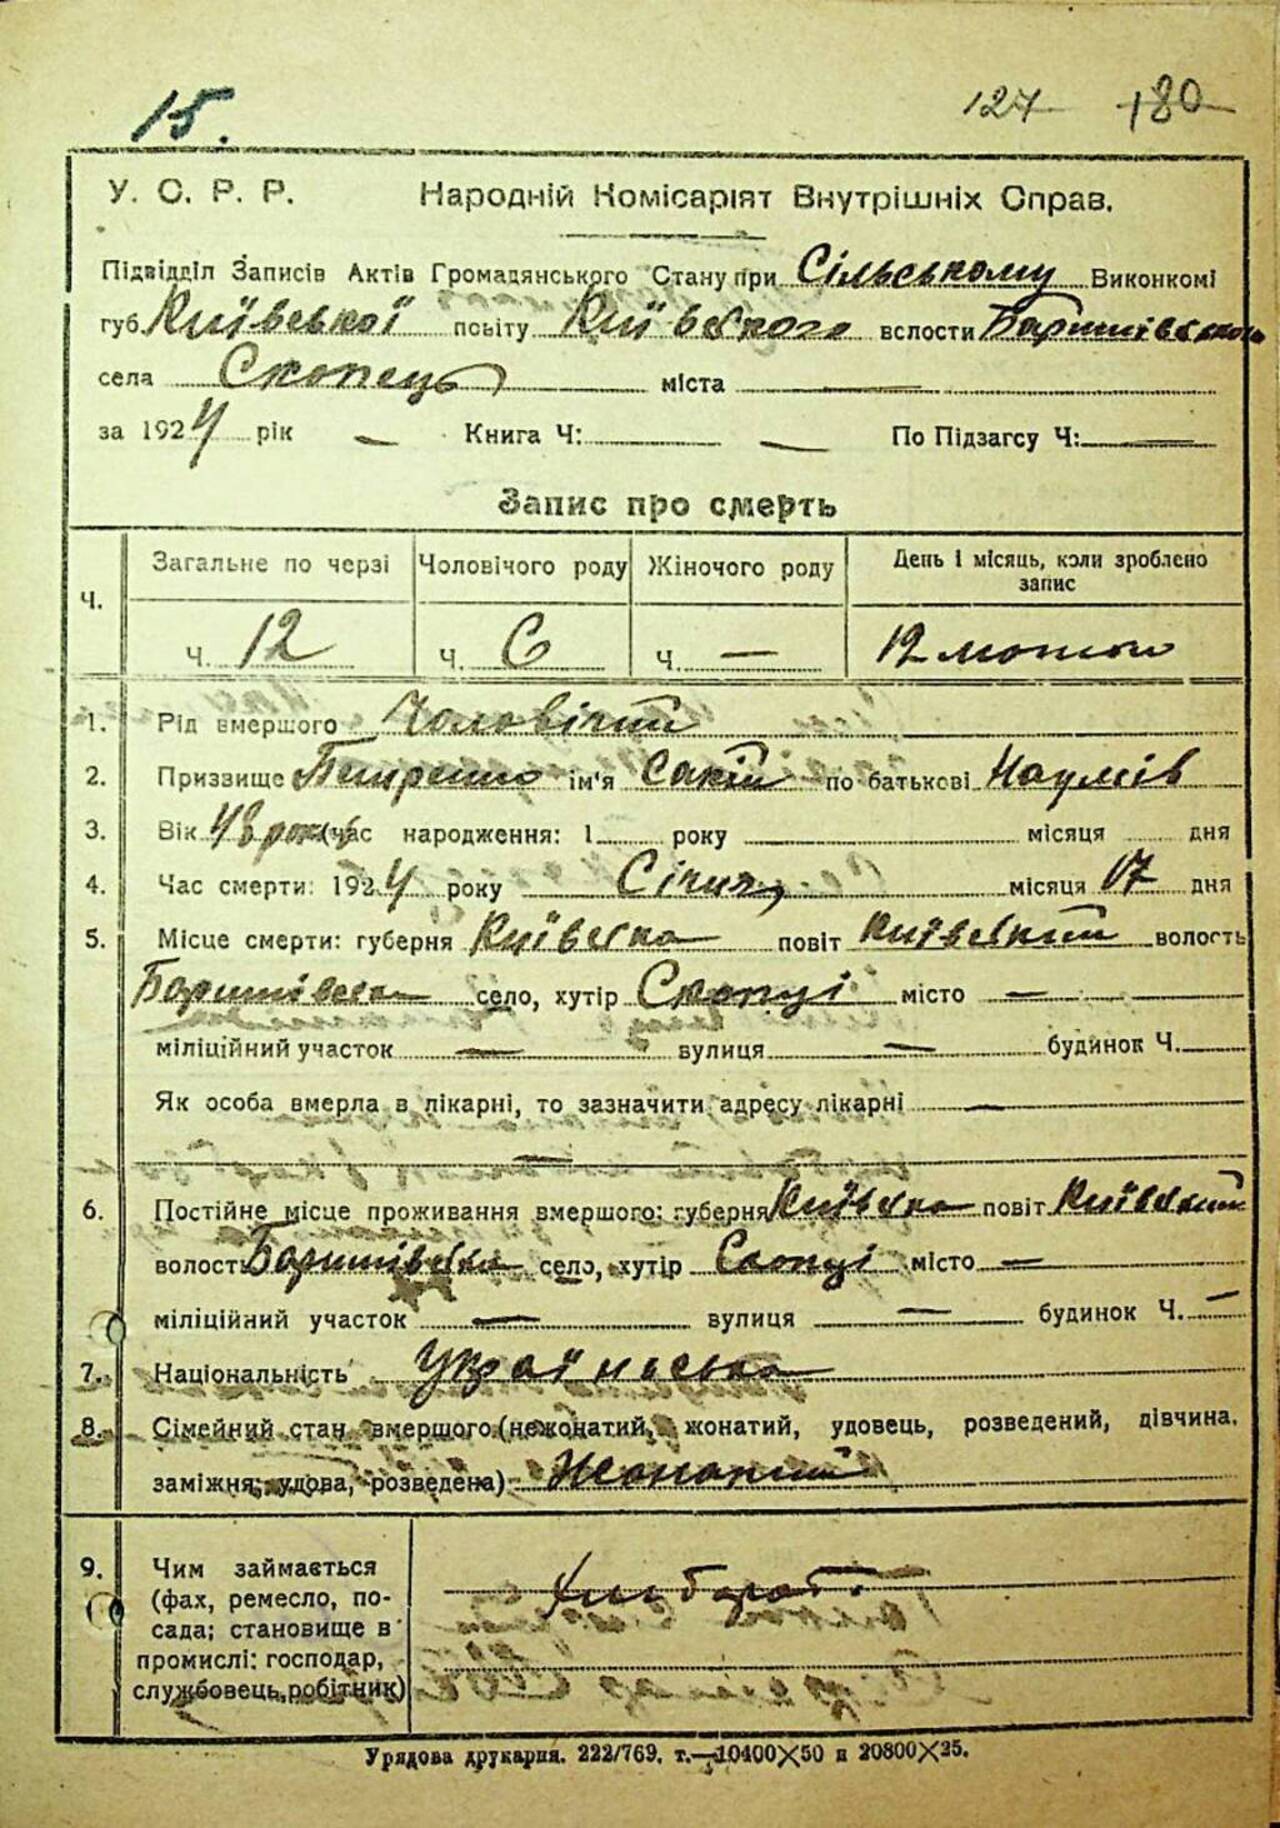 15.
127 180
У. С. Р. Р. Народній Комісаріят Внутрішніх Справ.
Підвідділ Записів Актів Громадянського Стану при Сільському Виконкомі
губ. Київської повіту Київського волости Баришівської
села Скопець міста —
за 1924 рік — Книга Ч: — По Підзагсу Ч: —
Запис про смерть
Ч. Загальне по черзі Чоловічого роду Жіночого роду День і місяць, коли зроблено запис
Ч. 12 Ч. 6 Ч. — 12 лютого
1. Рід вмершого Чоловічий
2. Призвище Петренко ім'я по батькові Наумів
3. Вік 48 років час народження: 1 року місяця дня
4. Час смерти: 1924 року Січня місяця 17 дня
5. Місце смерти: губерня Київська повіт Київський волость
Баришівська село, хутір Скопці місто —
міліційний участок — вулиця — будинок Ч.
Як особа вмерла в лікарні, то зазначити адресу лікарні —
—
6. Постійне місце проживання вмершого: губерня Київська повіт Київський
волость Баришівська село, хутір Скопці місто —
міліційний участок — вулиця — будинок Ч. —
7. Національність Українська
8. Сімейний стан вмершого (нежонатий, жонатий, удовець, розведений, дівчина,
заміжня, удова, розведена) Жонатий
9. Чим займається
(фах, ремесло, по-
сада; становище в
промислі: господар,
службовець, робітник)
Хлібороб.
Урядова друкарня. 222/769. т.—10400×50 и 20800×25.